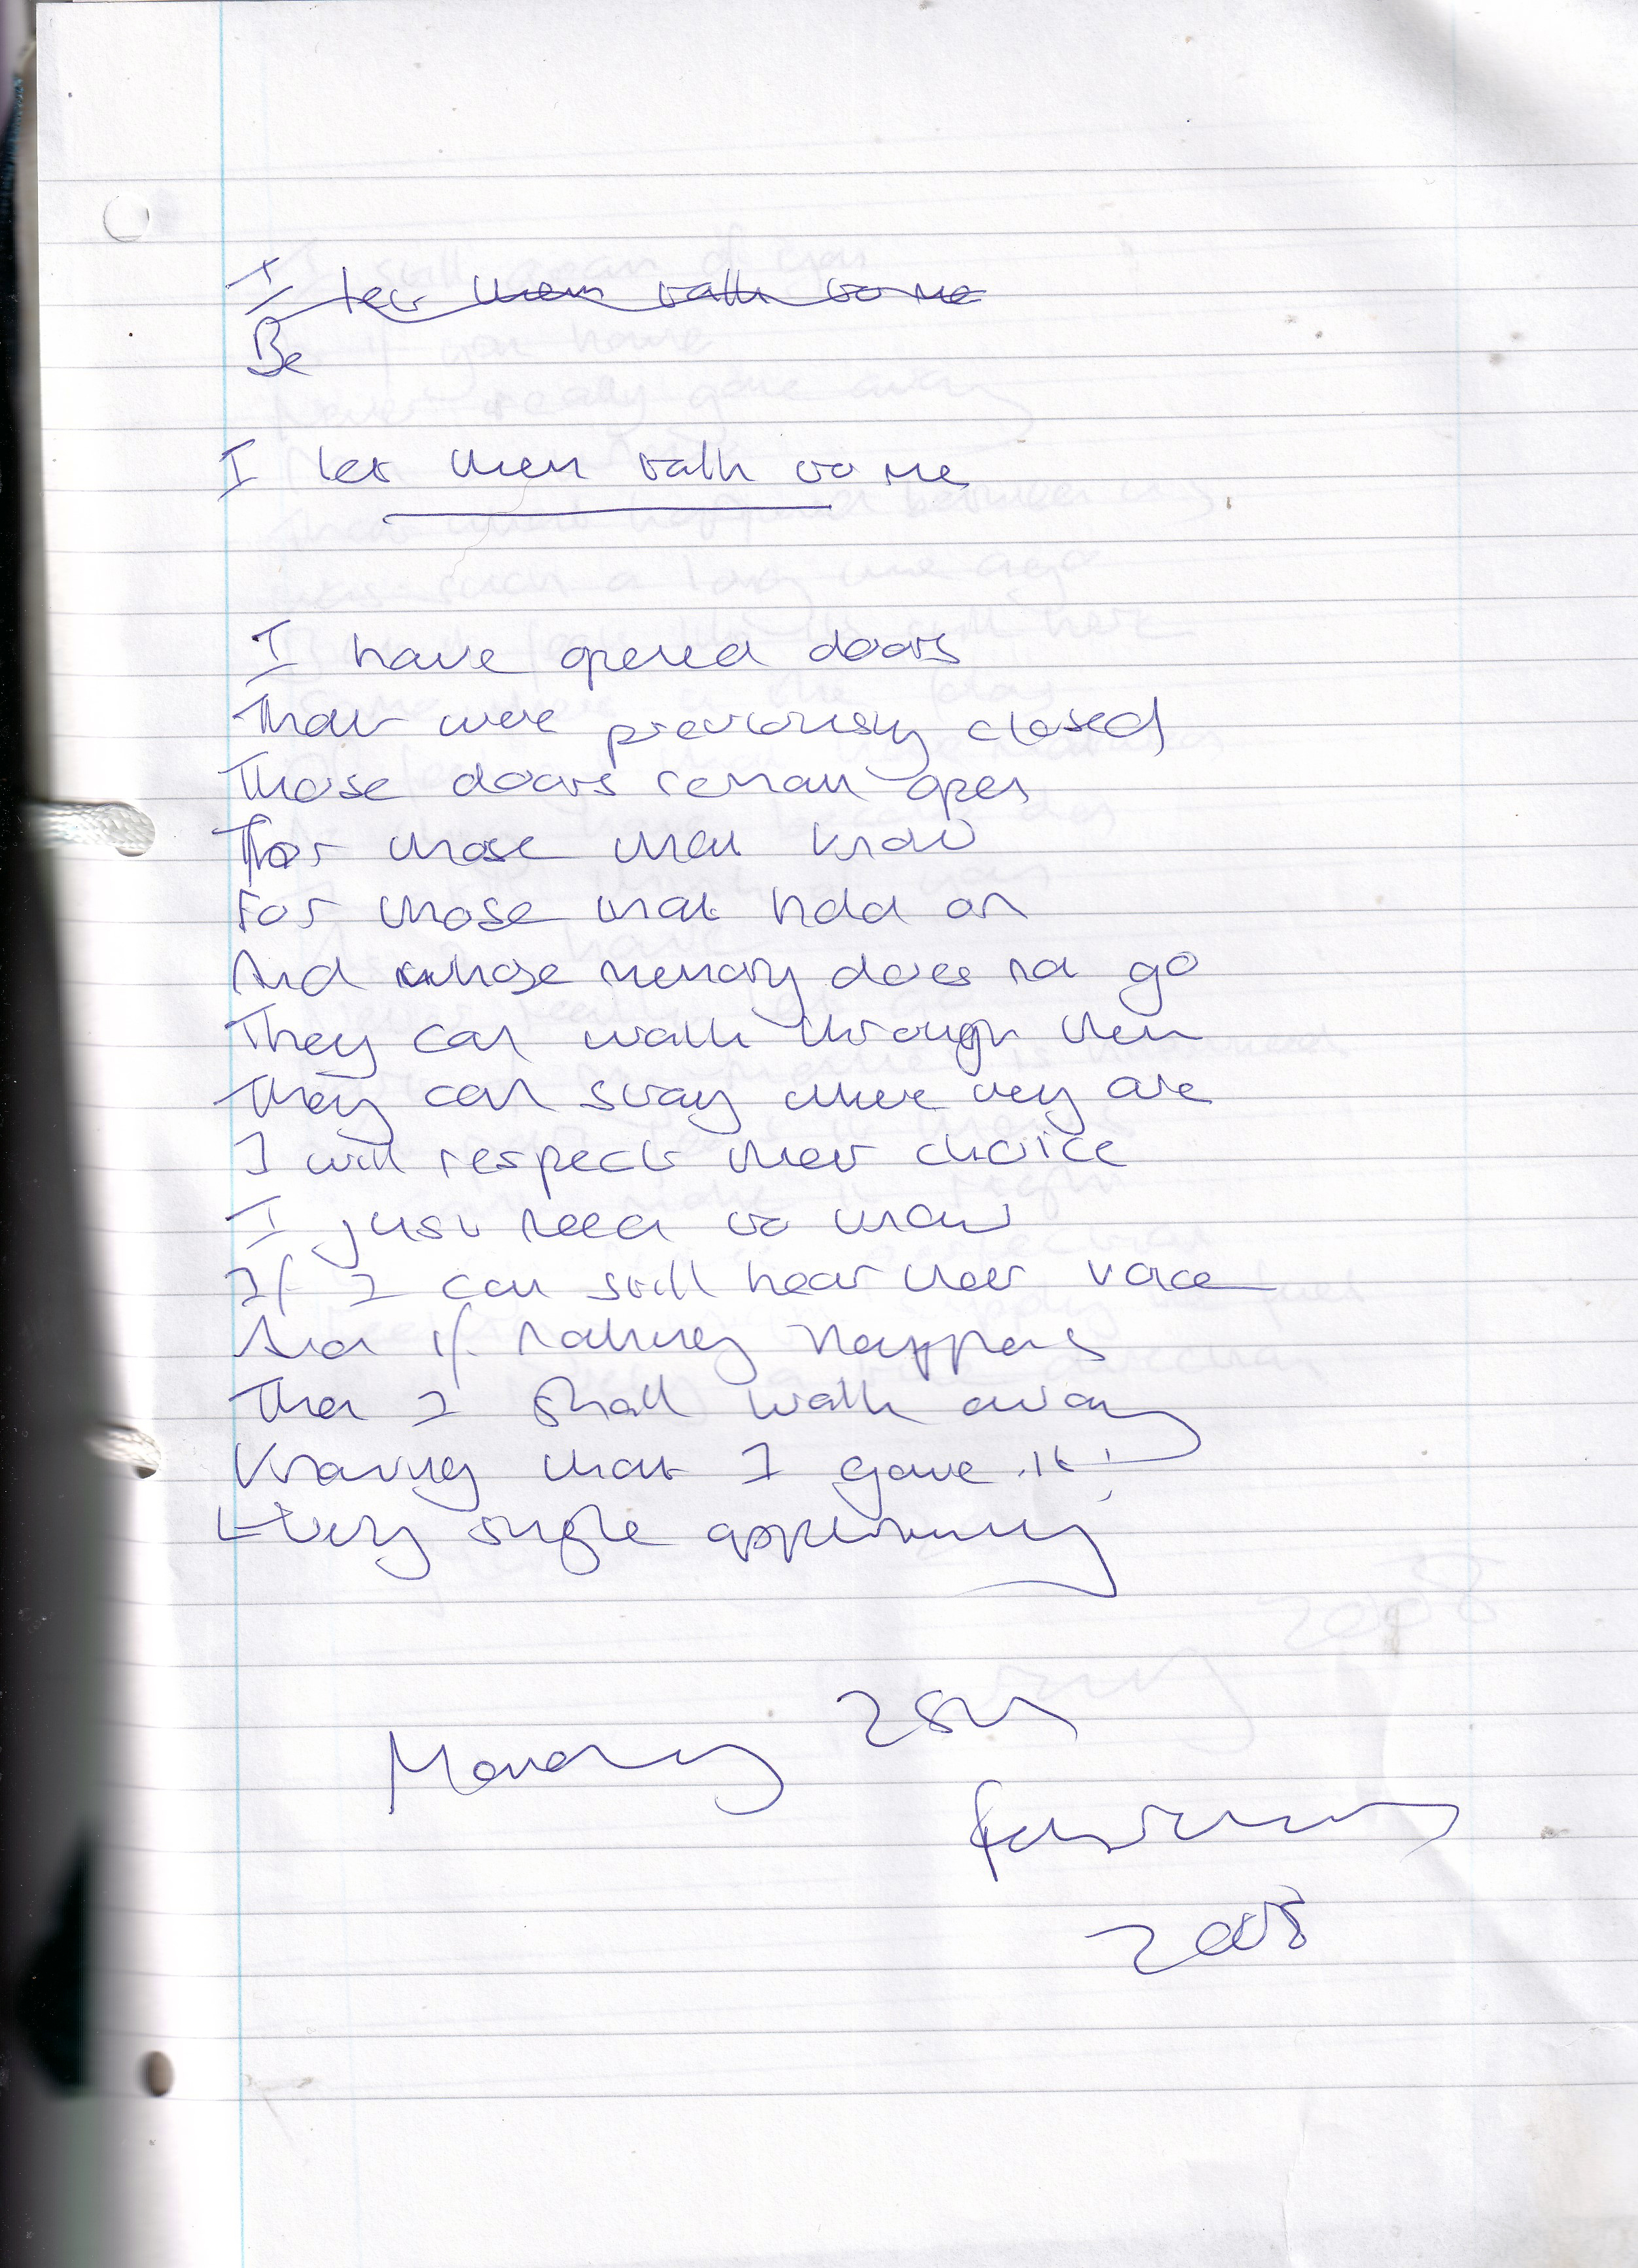 I let them talk to me
Be
I let them talk to me
I have opened doors
That were previously closed
Those doors remain open
For those that know
For those that hold on
And whose memory does not go
They can walk through them
They can stay where they are
I will respect their choice
I just need to know
If I can still hear their voice
And if nothing happens
Then I shall walk away
Knowing that I gave it
Every single opportunity
Monday 25th
February
2008